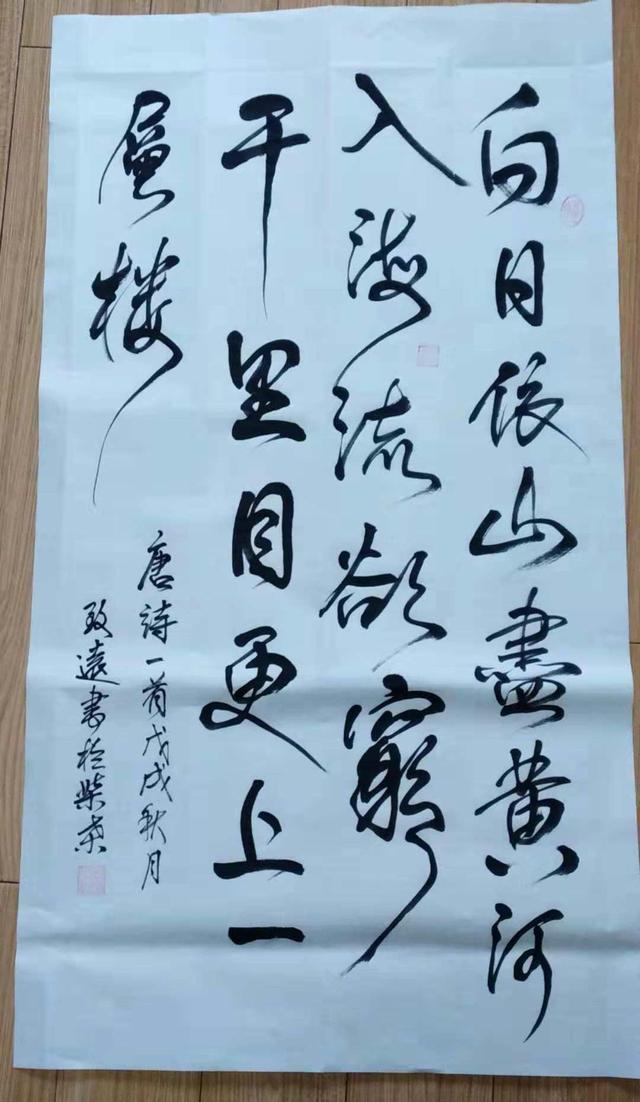 白日依山盡黄河
入海流欲窮
千里目更上一
層楼
唐詩一首戊戌秋月
致遠書於柴桑